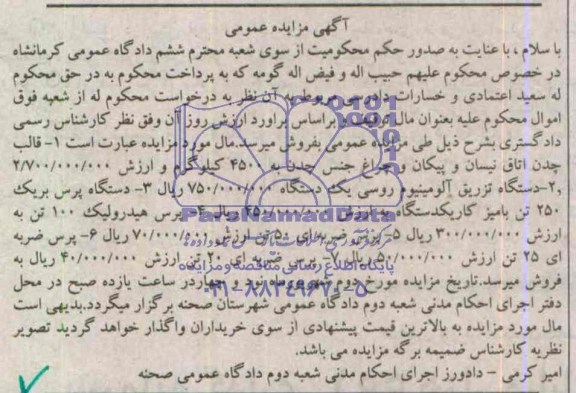 آگهی مزایده عمومی
با سلام ، با عنایت به صدور حکم محکومیت از سوی شعبه محترم ششم دادگاه عمومی کرمانشاه
در خصوص محکوم علیهم حبیب اله و فیض اله گومه که به پرداخت محکوم به در حق محکوم
له سعید اعتمادی و خسارات دادرسی مربوط به آن نظر به درخواست محکوم له از شعبه فوق
اموال محکوم علیه بعنوان مال براساس براورد ارزش روز آن وفق نظر کارشناس رسمی
دادگستری بشرح ذیل طی مزایده عمومی بفروش میرسد.مال مورد مزایده عبارت است ۱- قالب
چدن اتاق نیسان و پیکان و چراغ جنس چدن به ۴۵۰۰ کیلوگرم و ارزش ۲/۷۰۰/۰۰۰/۰۰۰
و۲-دستگاه تزریق آلومینیوم روسی یک دستگاه ۷۵۰/۰۰۰/۰۰۰ ریال ۳- دستگاه پرس بریک
۲۵۰ تن بامیز کاریکدستگاه ریال ۴- پرس هیدرولیک ۱۰۰ تن به
ارزش ۳۰۰/۰۰۰/۰۰۰ ریال ۵- پرس ضربه ای ۵۰ تن ارزش ۷۰/۰۰۰/۰۰۰ ریال ۶- پرس ضربه
ای ۲۵ تن ارزش ۵۰/۰۰۰/۰۰۰ ریال ۷- پرس ضربه ای ۲۰ تن ارزش ۴۰/۰۰۰/۰۰۰ ریال به
فروش میرسد.تاریخ مزایده مورخ دوم شهریورماه نود و چهاردر ساعت یازده صبح در محل
دفتر اجرای احکام مدنی شعبه دوم دادگاه عمومی شهرستان صحنه برگزار میگردد.بدیهی است
مال مورد مزایده به بالاترین قیمت پیشنهادی از سوی خریداران واگذار خواهد گردید تصویر
نظریه کارشناس ضمیمه برگه مزایده می باشد.
امیر کرمی - دادورز اجرای احکام مدنی شعبه دوم دادگاه عمومی صحنه
ParsNamadData
پایگاه اطلاع رسانی مناقصه و مزایده
۰۲۱-۸۸۳۴۹۶۷۰-۵